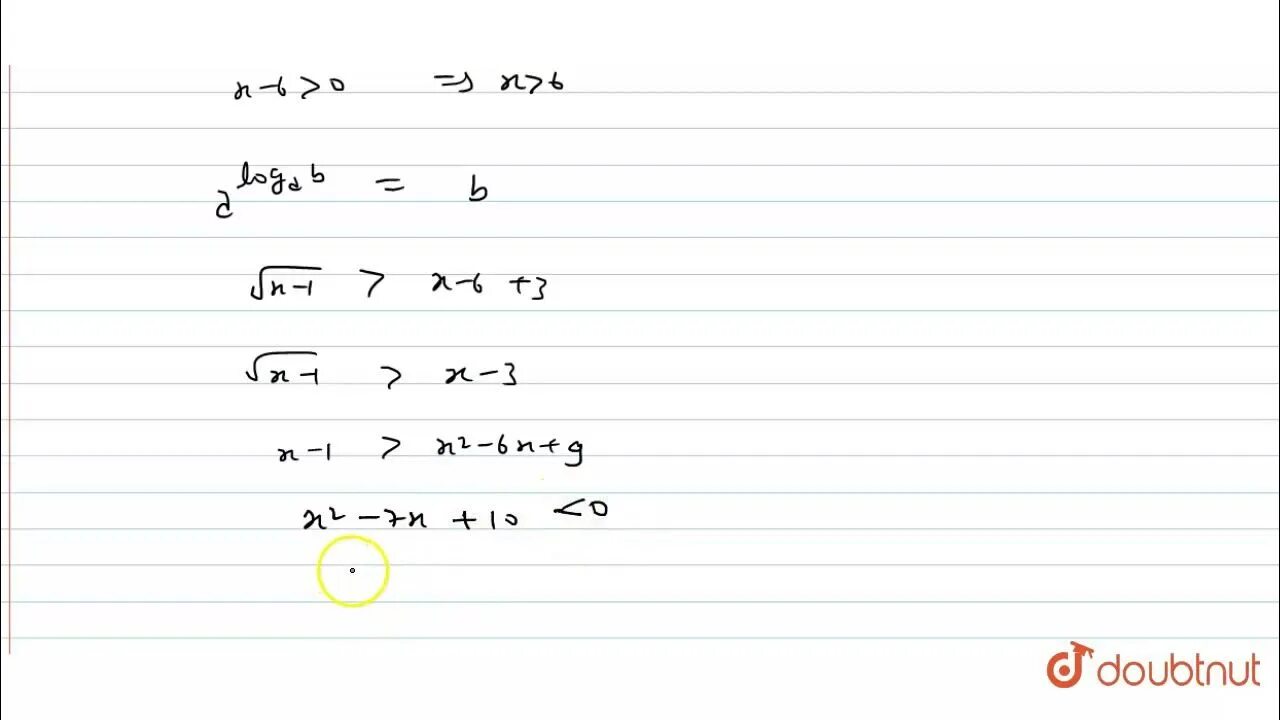 x-6>0 ⇒ x>6
a^{log_a b} = b
√(x-1) > x-6 +3
√(x-1) > x-3
x-1 > x²-6x+9
x² -7x +10 <0
doubtnut